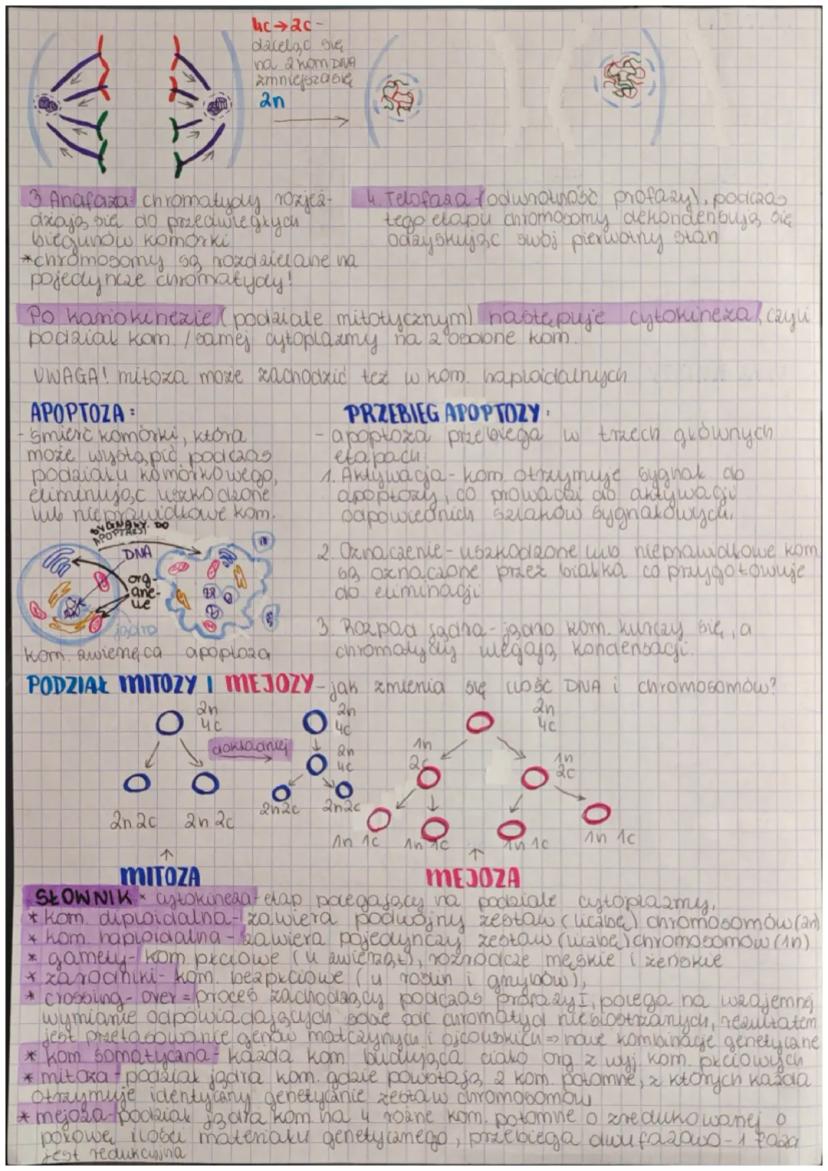 4c→2c-
dzieląc się
na 2 kom DNA
zmniejsza się
2n
3. Anafaza: chromatydy rozjeż-
dżają się do przeciwległych
biegunów komórki
*chromosomy są rozdzielane na
pojedyncze chromatydy!
4. Telofaza (odwrotność profazy), podczas
tego etapu chromosomy dekondensują się
odzyskując swój pierwotny stan
Po kariokinezie (podziale mitotycznym) następuje cytokineza, czyli
podział kom. / samej cytoplazmy na 2 osobne kom.
UWAGA! mitoza może zachodzić też w kom. haploidalnych
APOPTOZA:
- śmierć komórki, która
może wystąpić podczas
podziału komórkowego,
eliminując uszkodzone
lub nieprawidłowe kom.
SYGNAŁY DO
APOPTOZY
DNA
org-
ane-
lle
jądro
kom. zwierzęca apoptoza
PRZEBIEG APOPTOZY:
- apoptoza przebiega w trzech głównych
etapach
1. Aktywacja - kom. otrzymuje sygnał do
apoptozy, co prowadzi do aktywacji
odpowiednich szlaków sygnałowych.
2. Oznaczenie - uszkodzone lub nieprawidłowe kom
są oznaczone przez białka co przygotowuje
do eliminacji
3. Rozpad jądra - jądro kom. kurczy się, a
chromatydy ulegają kondensacji.
PODZIAŁ MITOZY I MEJOZY - jak zmienia się ilość DNA i chromosomów?
2n
4c
dokładniej
2n 2c 2n 2c
2n
4c
2n
4c
2n2c 2n2c
2n
4c
1n
2c
1n
2c
1n 1c 1n 1c 1n 1c 1n 1c
MITOZA
MEJOZA
SŁOWNIK * cytokineza - etap polegający na podziale cytoplazmy,
* kom. diploidalna - zawiera podwójny zestaw (liczbę) chromosomów (2n)
* kom. haploidalna - zawiera pojedynczy zestaw (liczbę) chromosomów (1n)
* gamety - kom płciowe (u zwierząt), rozrodcze męskie i żeńskie
* zarodniki - kom. bezpłciowe (u roślin i grzybów),
* crossing-over = proces zachodzący podczas profazy I, polega na wzajemnej
wymianie odpowiadających sobie odc chromatyd niesiostrzanych, rezultatem
jest przetasowanie genów matczynych i ojcowskich ⇒ nowe kombinacje genetyczne
* kom somatyczna - każda kom budująca ciało org z wyj kom. płciowych
* mitoza - podział jądra kom. gdzie powstają 2 kom potomne, z których każda
otrzymuje identyczny genetycznie zestaw chromosomów
* mejoza - podział jądra kom na 4 różne kom. potomne o zredukowanej o
połowę ilości materiału genetycznego, przebiega dwufazowo - 1 faza
jest redukcyjna